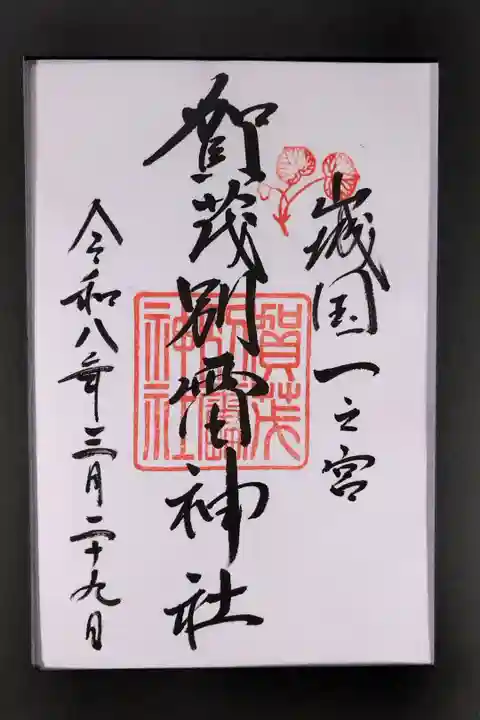 山城国一之宮
賀茂別雷神社
賀茂別雷神社
令和八年三月二十九日